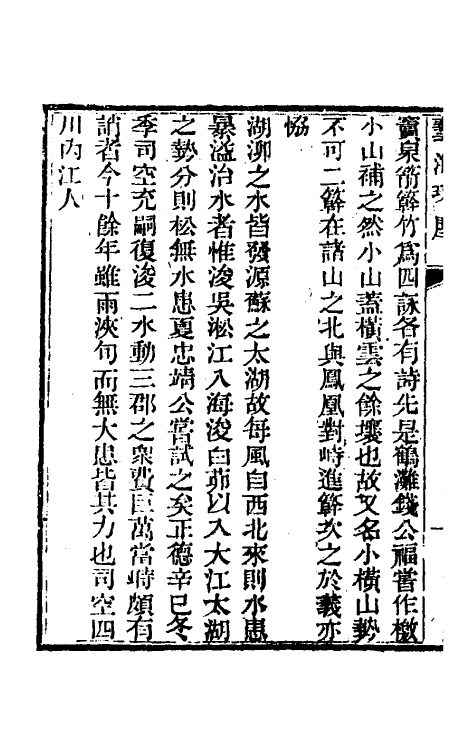 賣泉箭簳竹爲四詠各有詩先是鶴灘錢公福嘗作檄
小山補之然小山蓋橫雲之餘壤也故又名小橫山勢
不可二簳在諸山之北與鳳凰對峙進簳次之於義亦
恊
湖泖之水皆發源蘇之太湖故每風自西北來則水患
暴溢治水者惟浚吳淞江入海浚白茆以入大江太湖
之勢分則松無水患夏忠靖公嘗試之矣正德辛巳冬
季司空充嗣復浚二水動三郡之衆費巨萬當時頗有
誚者今十餘年雖雨浹旬而無大患皆其力也司空四
川內江人